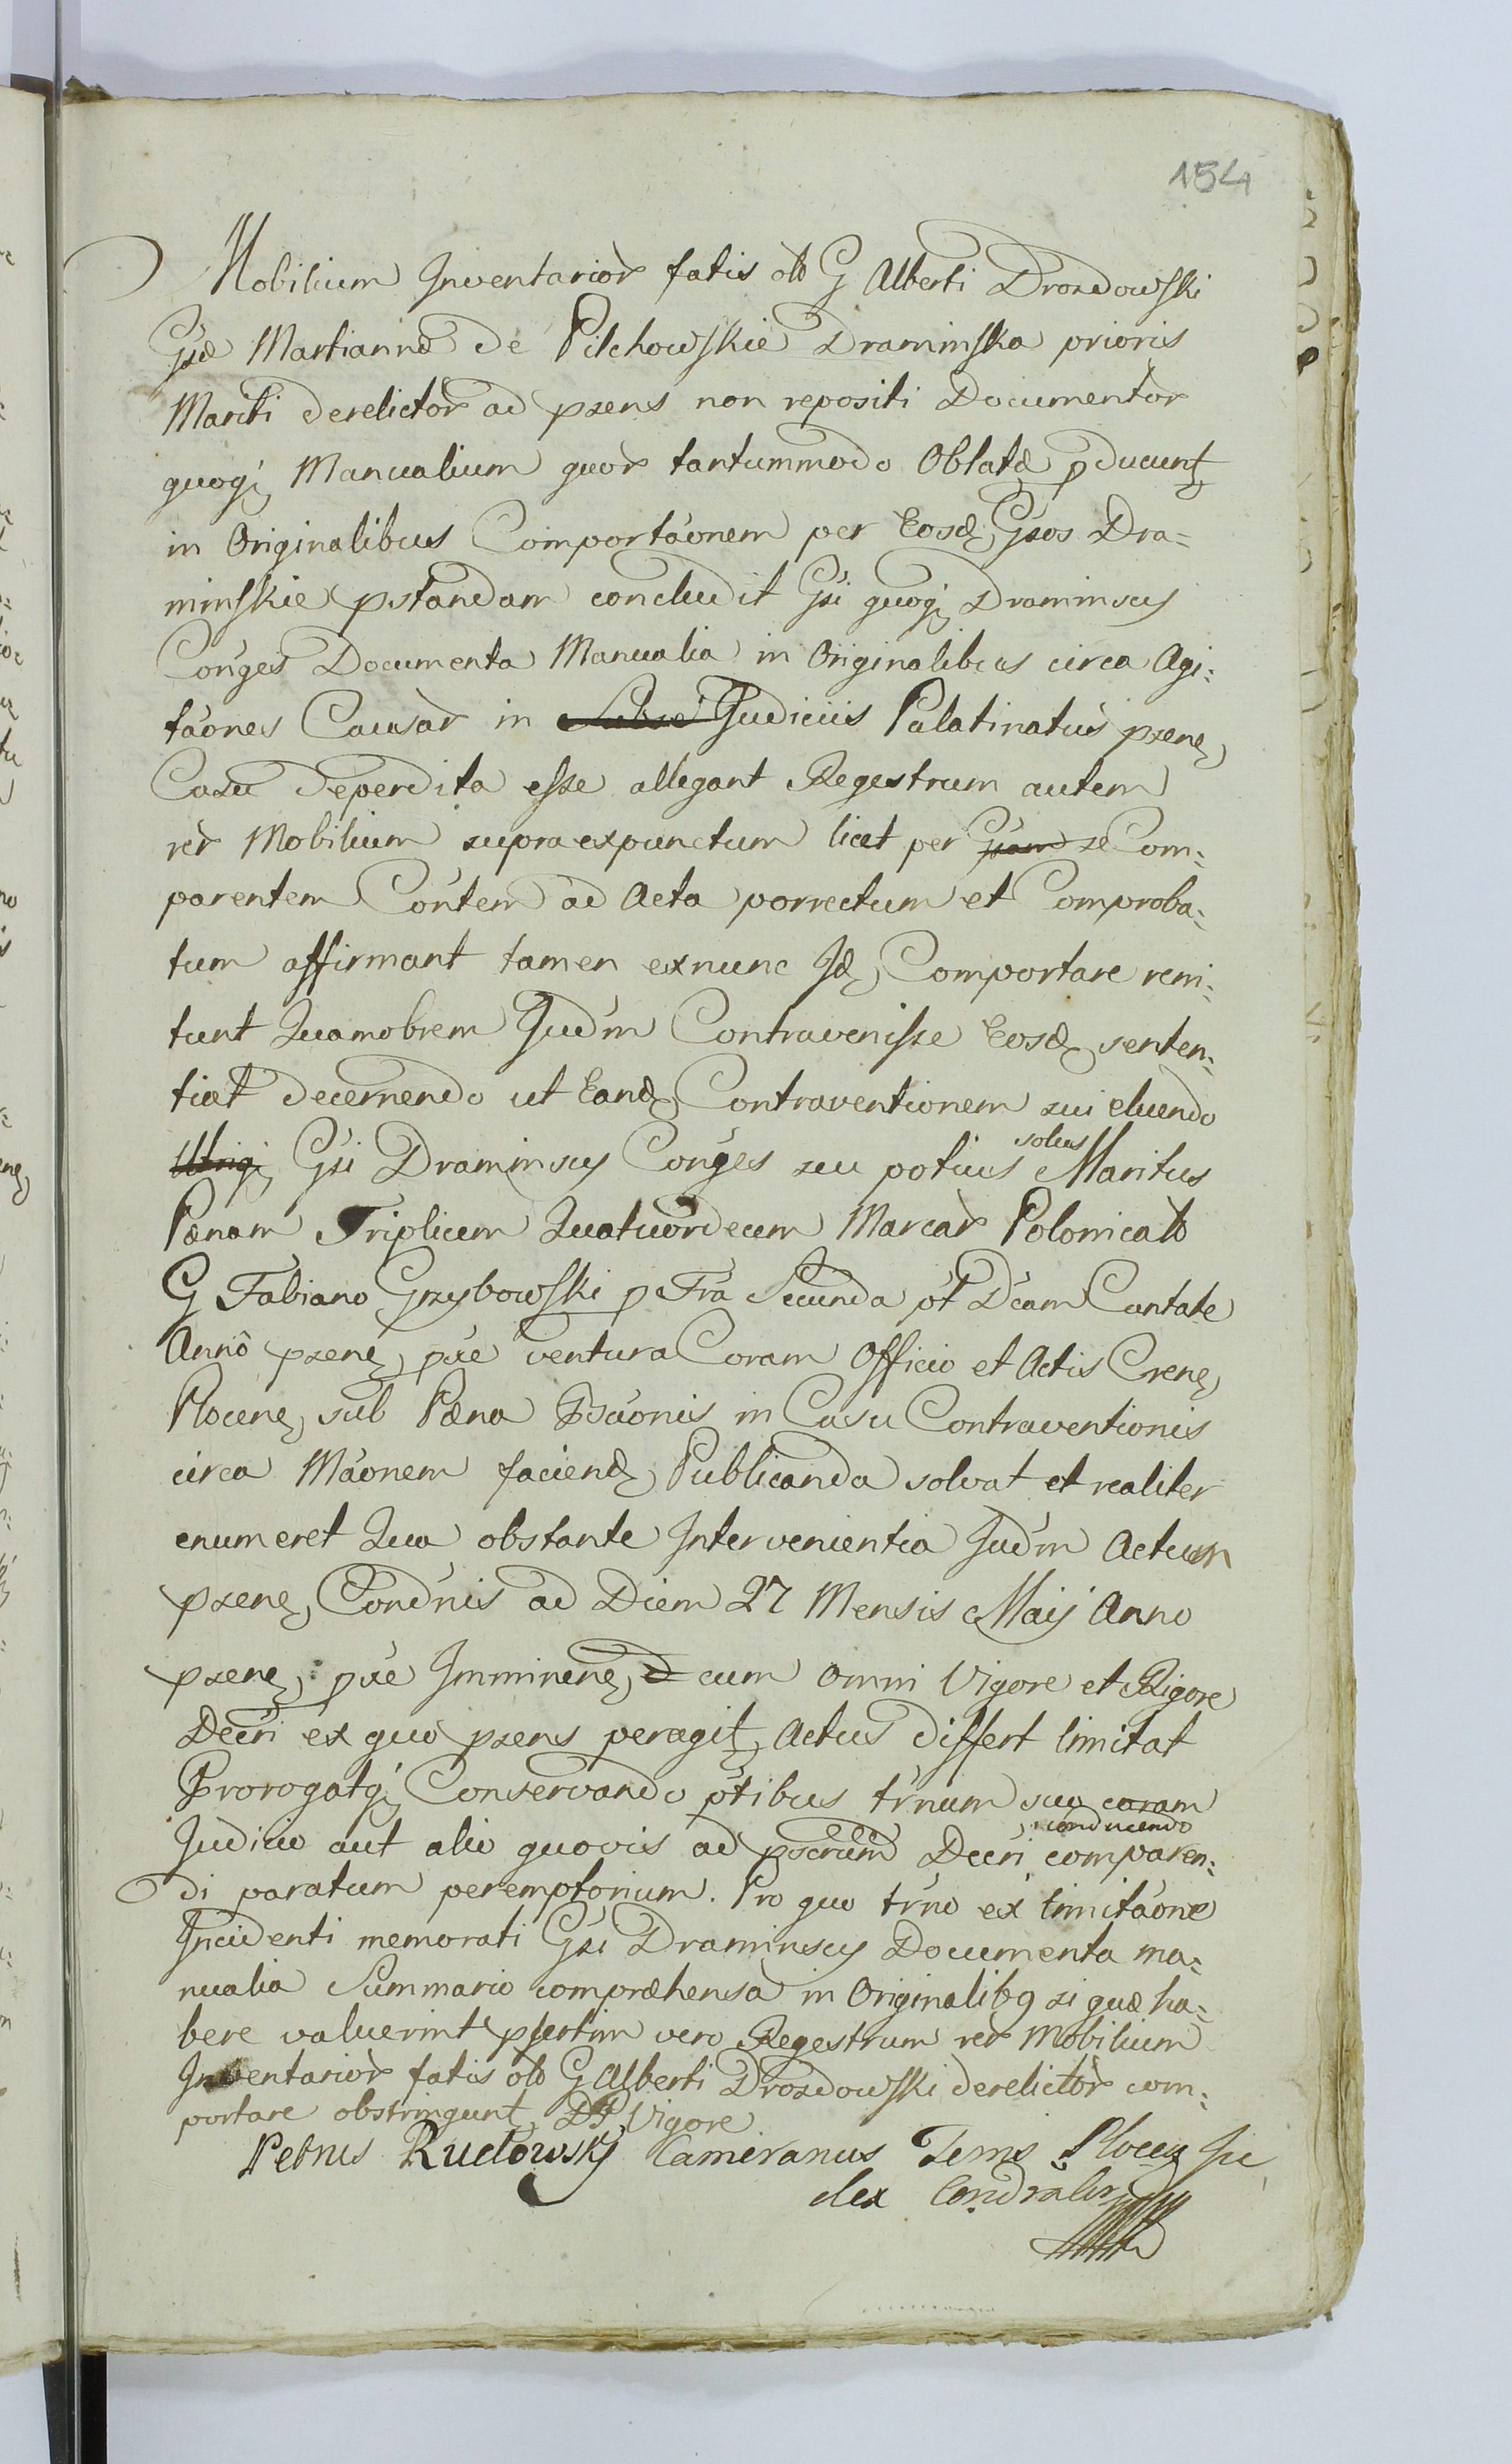 154
Mobilium Inventarior fatis olb G Alberti Drozdowski
Gsæ Martiannæ de Pilchowskie Draminska prioris
Mariti derelictor ad pxens non repositi Documentor
quoq; Manualium quor tantummodo Oblatæ pducunt
in Originalibus Comportaõnem per Eosd, Gsos Dra=
minskie pstandam concludit Gsi quoq; Draminscy
Conges Documenta Manualia in Originalibus circa Agi=
taónes Causar in Judiciis Palatinatus pxene,
Casu deperdita esse allegant Regestrum autem
rer Mobilium supra expunctum licet per Gsam se Com=
parentem Contem ad Acta porrectum et Comproba=
tum affirmant tamen exnunc Id, Comportare reni=
tunt Quamobrem Judm Contravenisse Eosd, senten=
tiat decernendo ut Eand, Contraventionem sui eluendo
Utriq; Gsi Draminscy Conges seu potius solus Maritus
Pænam Triplicem Quatuordecem Marcar Polonicalb
G Fabiano Grzybowski p Fra Secunda pt Dcam Cantate
Anno pxene, pxe ventura Coram Officio et Actis Crene,
Plocene, sub Pæna Bcionis in Casu Contraventionis
circa Maónem faciend, Publicanda solvat et realiter
enumeret Qua obstante Intervenientia Judm Actum
pxene, Condnis ad Diem 27 Mensis Maij Anno
pxene, pxe Imminene, cum omni Vigore et Rigore
Decri ex quo pxens peragit, Actus differt limitat
Prorogatq; Conservando ptibus trnum suo coram
Judicio aut alio quovis ad pscrum Decri conducendo comparen=
di paratum peremptorium. Pro quo trno ex limitaóne
Incidenti memorati Gsi Draminscy Documenta ma=
nualia Summario compræhensa in Originalib9 si quæ ha=
bere valuerint psertim vero Regestrum rer Mobilium
Inventarior fatis olb G Alberti Drozdowski derelictor com=
portare obstringunt, DP Vigore
Petrus Rudowsky Cameranus Terris Plocen Ju
dex Condralis